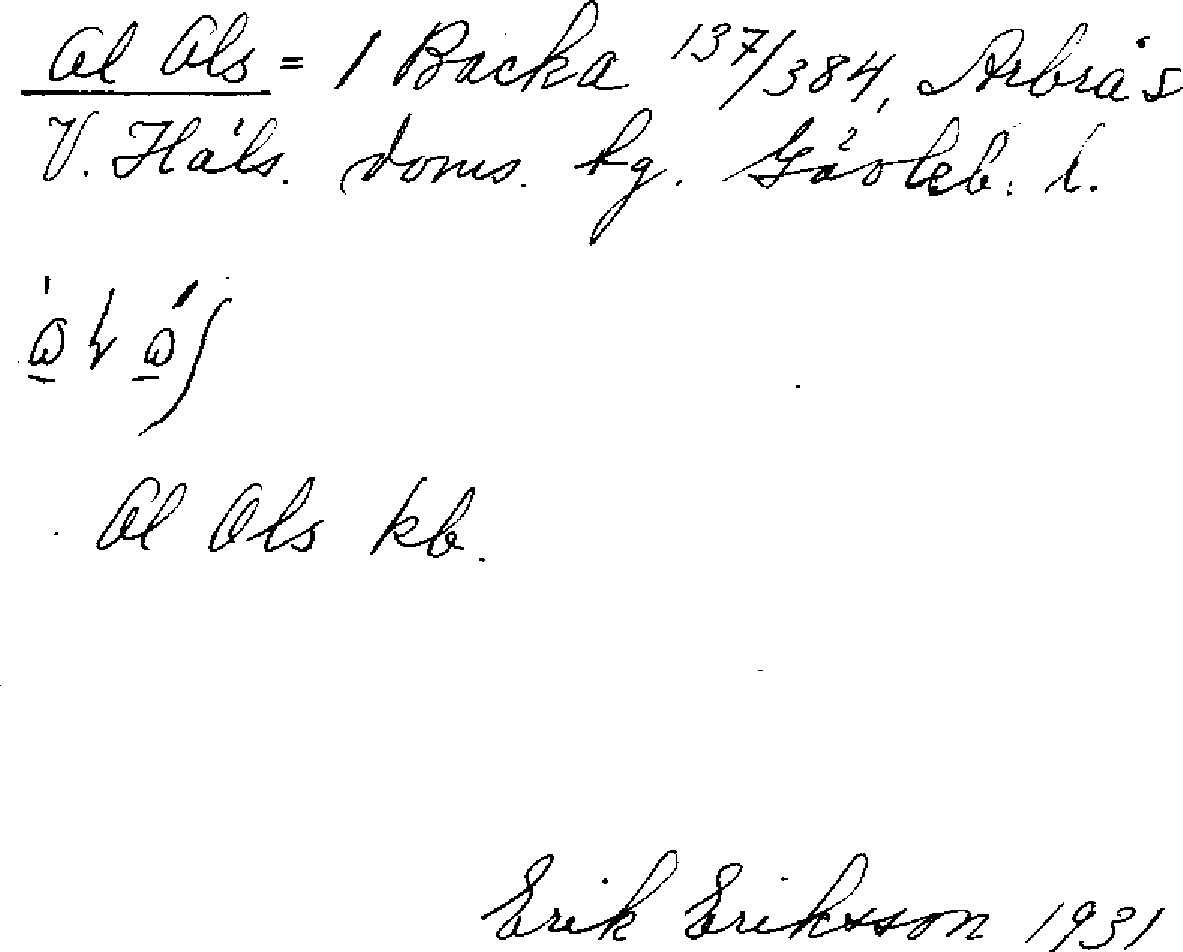 Ol Ols = 1 Backa 137/384, Arbrå s
V. Häls. doms. hg. Gävleb. l.
Ol Ols kb.
Erik Eriksson 1931